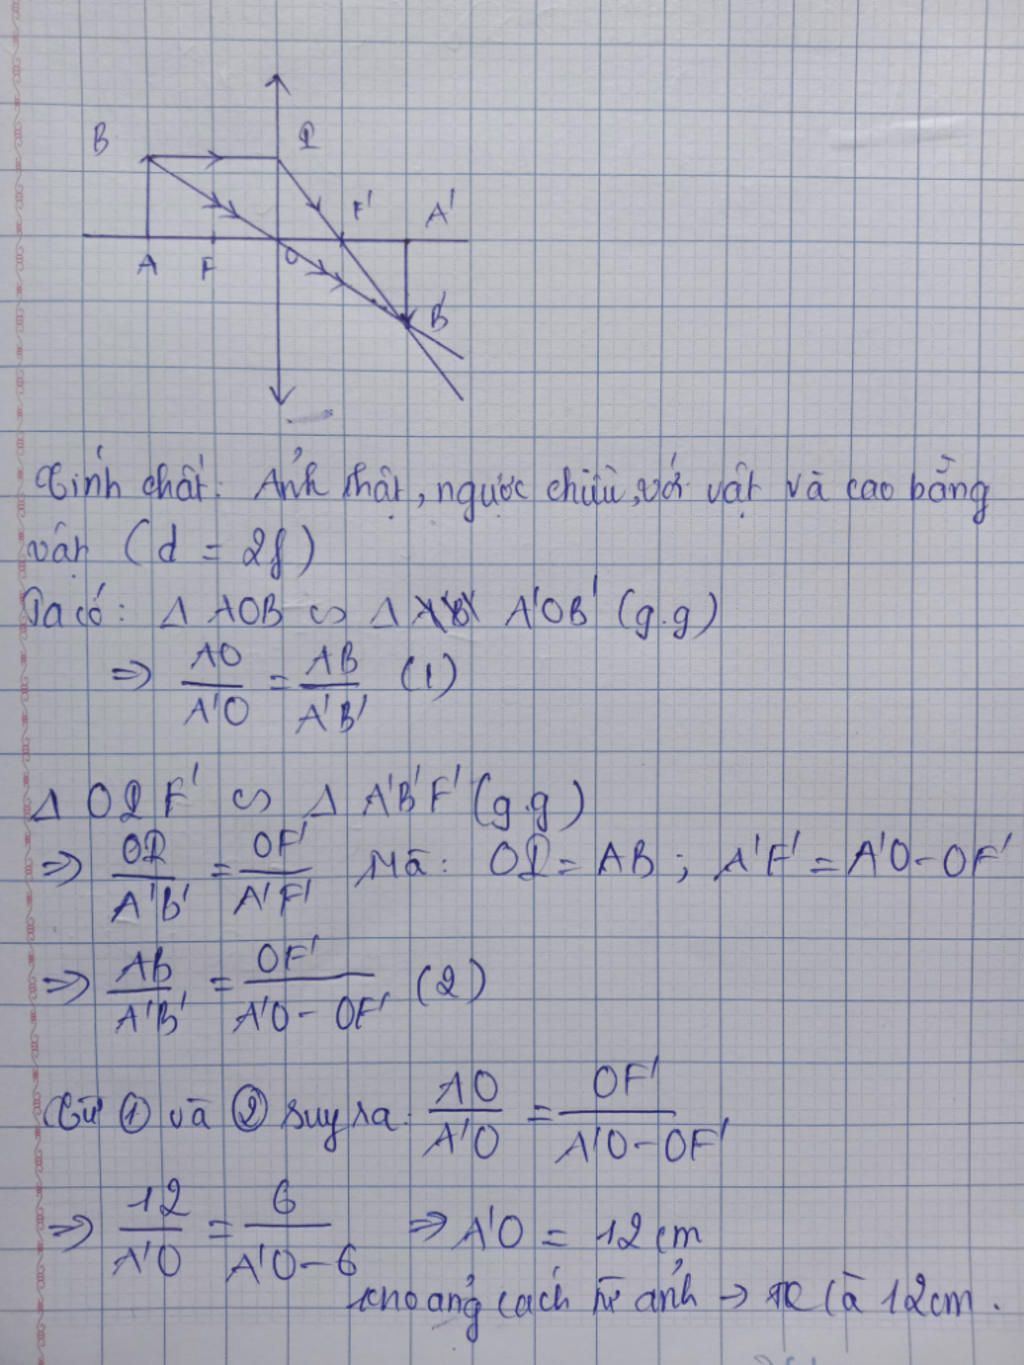 B I
F' A'
A F O
B'
Tính chất: Ảnh thật, ngược chiều, với vật và cao bằng
vật (d = 2f)
Ta có: Δ AOB ∽ Δ A'OB' (g.g)
⇒ AO/A'O = AB/A'B' (1)
Δ OIF' ∽ Δ A'B'F' (g.g)
⇒ OI/A'B' = OF'/A'F' Mà: OI = AB ; A'F' = A'O - OF'
⇒ AB/A'B' = OF'/A'O - OF' (2)
Từ ① và ② suy ra: AO/A'O = OF'/A'O - OF'
⇒ 12/A'O = 6/A'O - 6 ⇒ A'O = 12 cm
Khoảng cách từ ảnh → TK là 12cm.